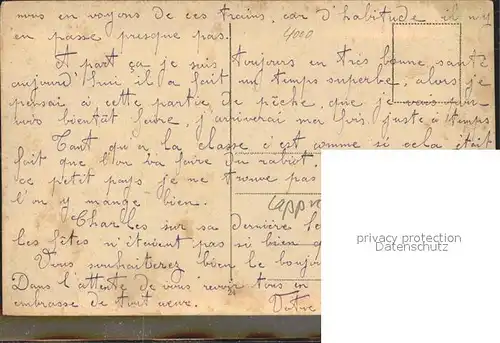 nous en voyons de ces trains, car d'habitude il n'y
en passe presque pas.
4000
A part ça je suis toujours en très bonne santé
aujourd'hui il a fait un temps superbe, alors je
pensai à cette partie de pêche, que je vais
bientôt j'arriverai ma fois juste à temps
Tant qu'à la classe c'est comme si cela était
fait que l'on va faire du rabiot.
ce petit pays je ne trouve pas
l'on y mange bien.
Charles sur sa dernière
les fêtes n'étaient pas si bien
Vous souhaiterez bien le bonjour
Dans l'attente de vous revoir tous en
embrasse de tout cœur.
Votre
privacy protection
Datenschutz